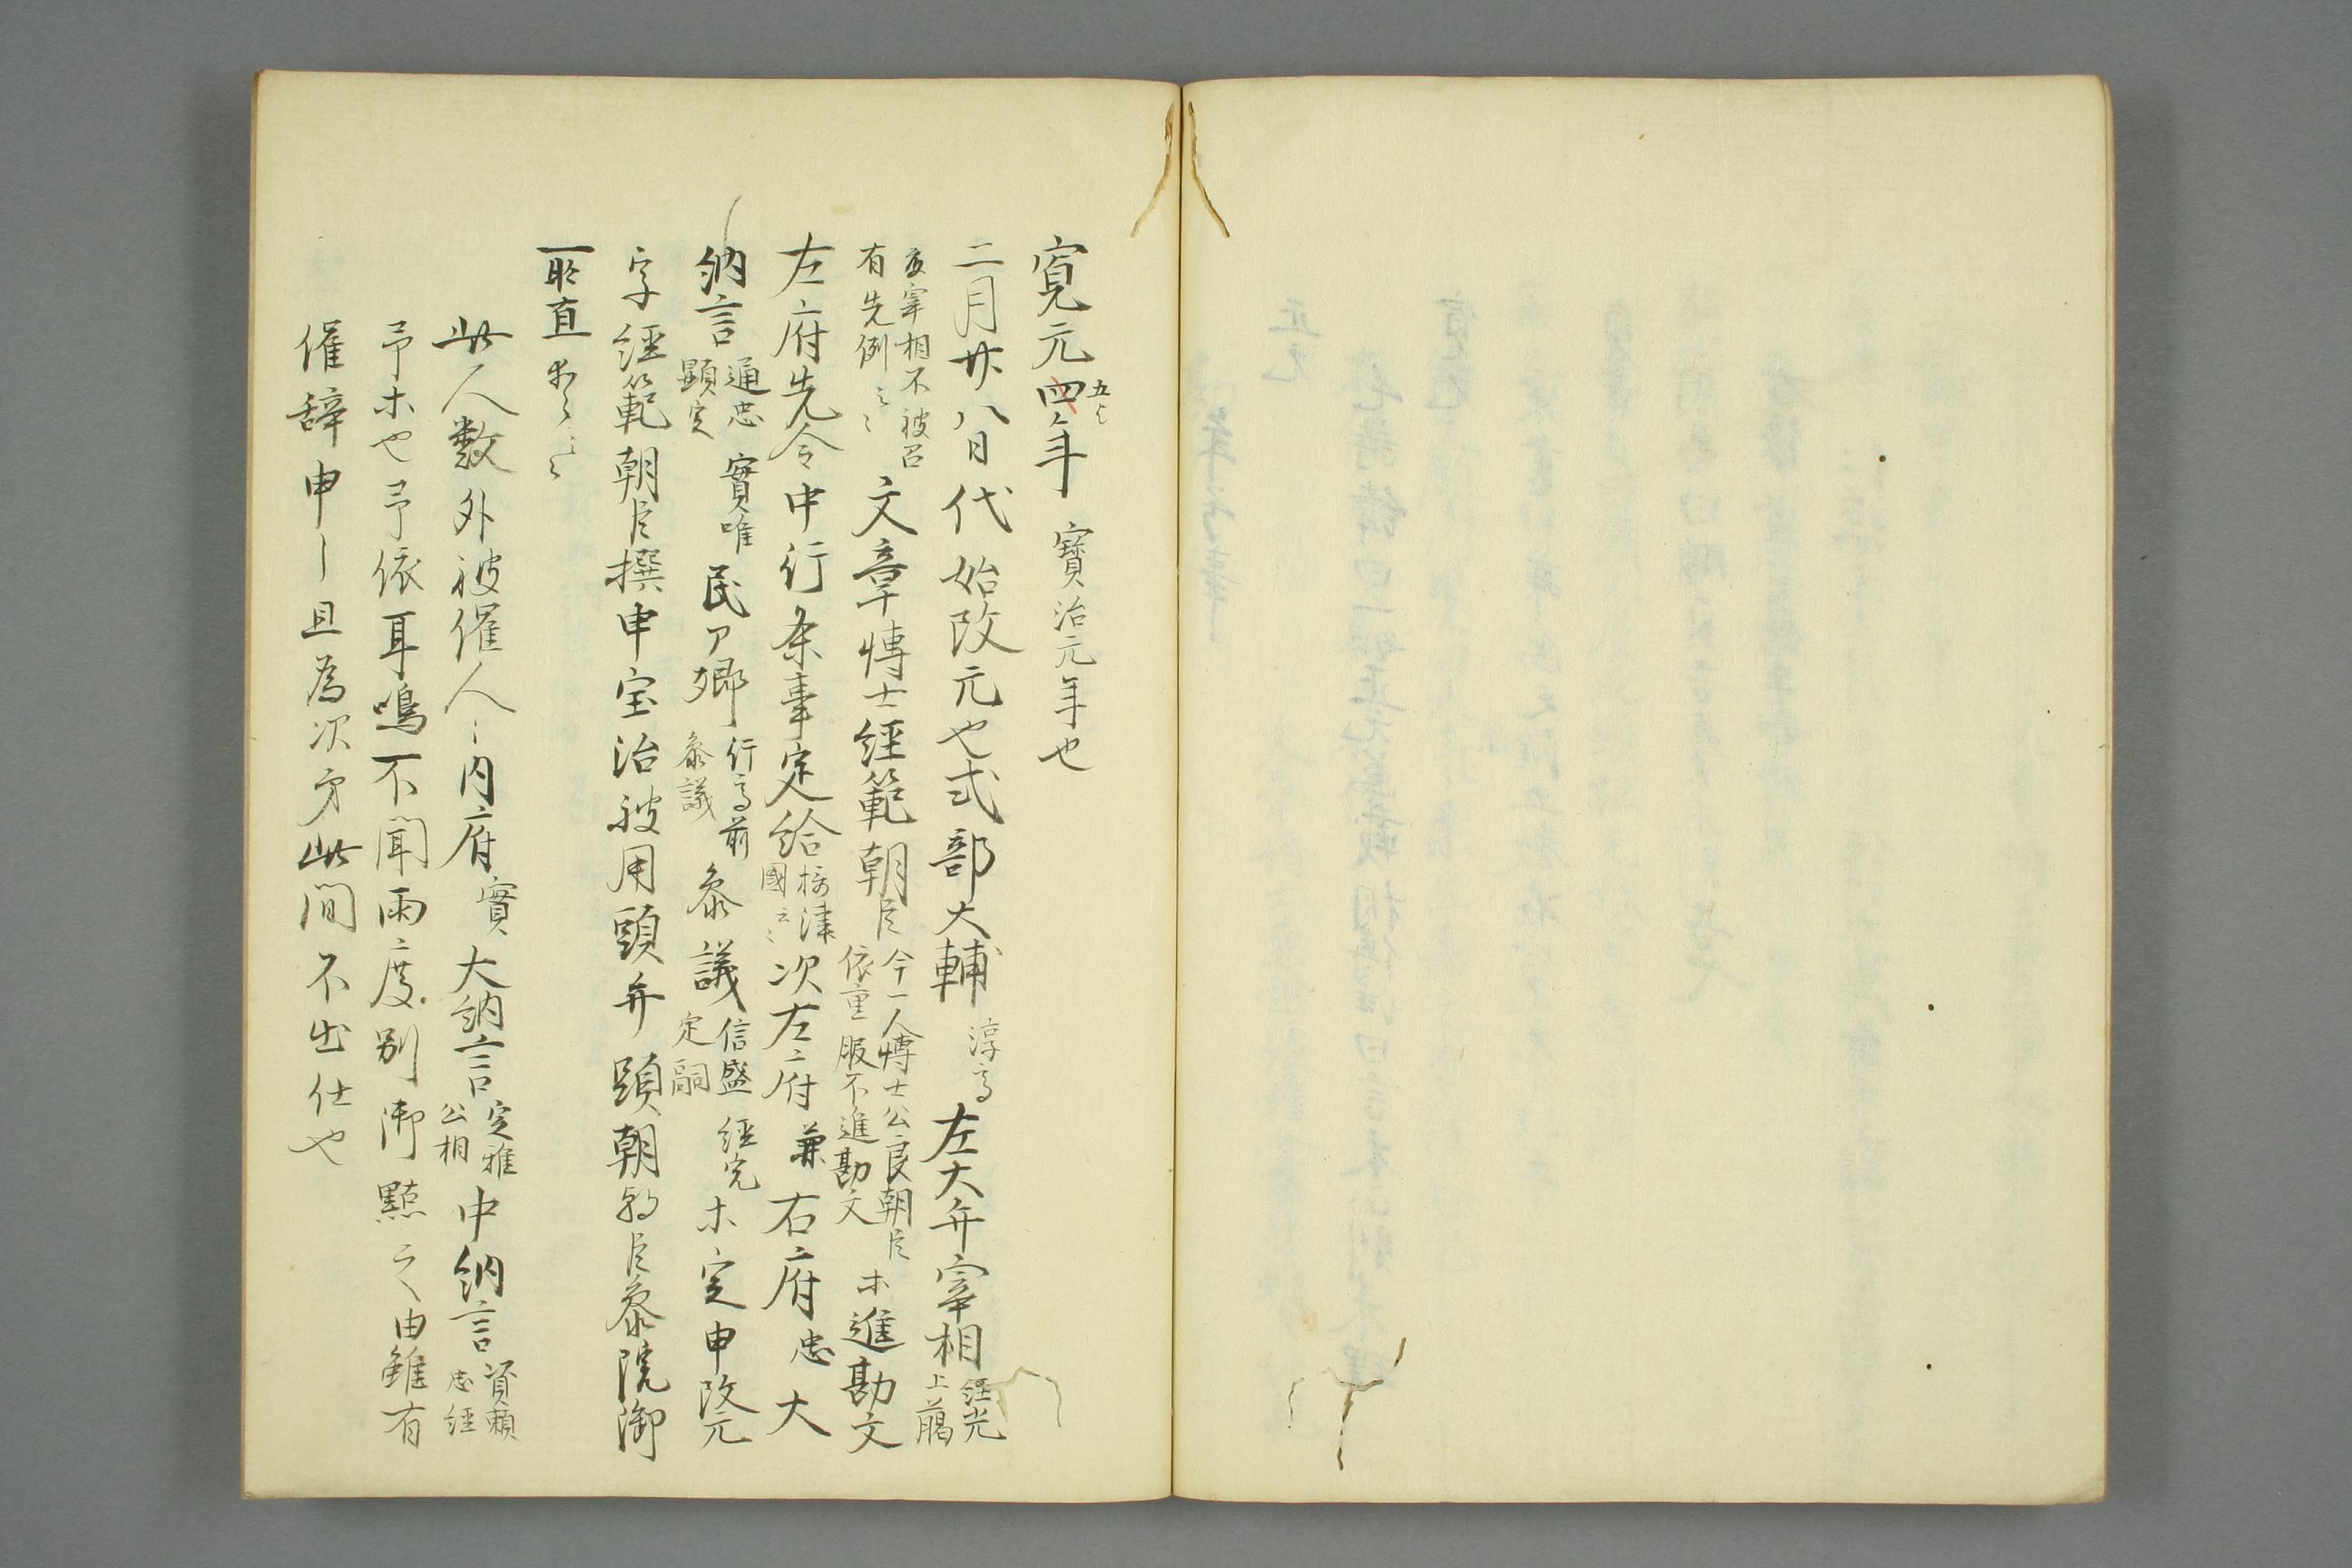 寛元四年五歟 寶治元年也
二月廿八日代始改元也式部大輔淳高左大弁宰相経光上臈
故宰相不被召有先例云々文章博士経範朝臣今一人博士公良朝臣依重服不進勘文ホ進勘文
左府先令申行条事定給摂津國云々次左府兼右府忠大
納言通忠顕定實唯民卩卿行高前参議参議信盛定嗣経光ホ定申改元
字経範朝臣撰申宝治被用頭弁顕朝朝臣参院御
聴直
此人数外被催人々内府實大納言定雅公相中納言資頼忠経
予ホ也予依耳鳴不聞両度別御點之由雖有
催辞申了且為次第此間不出仕也